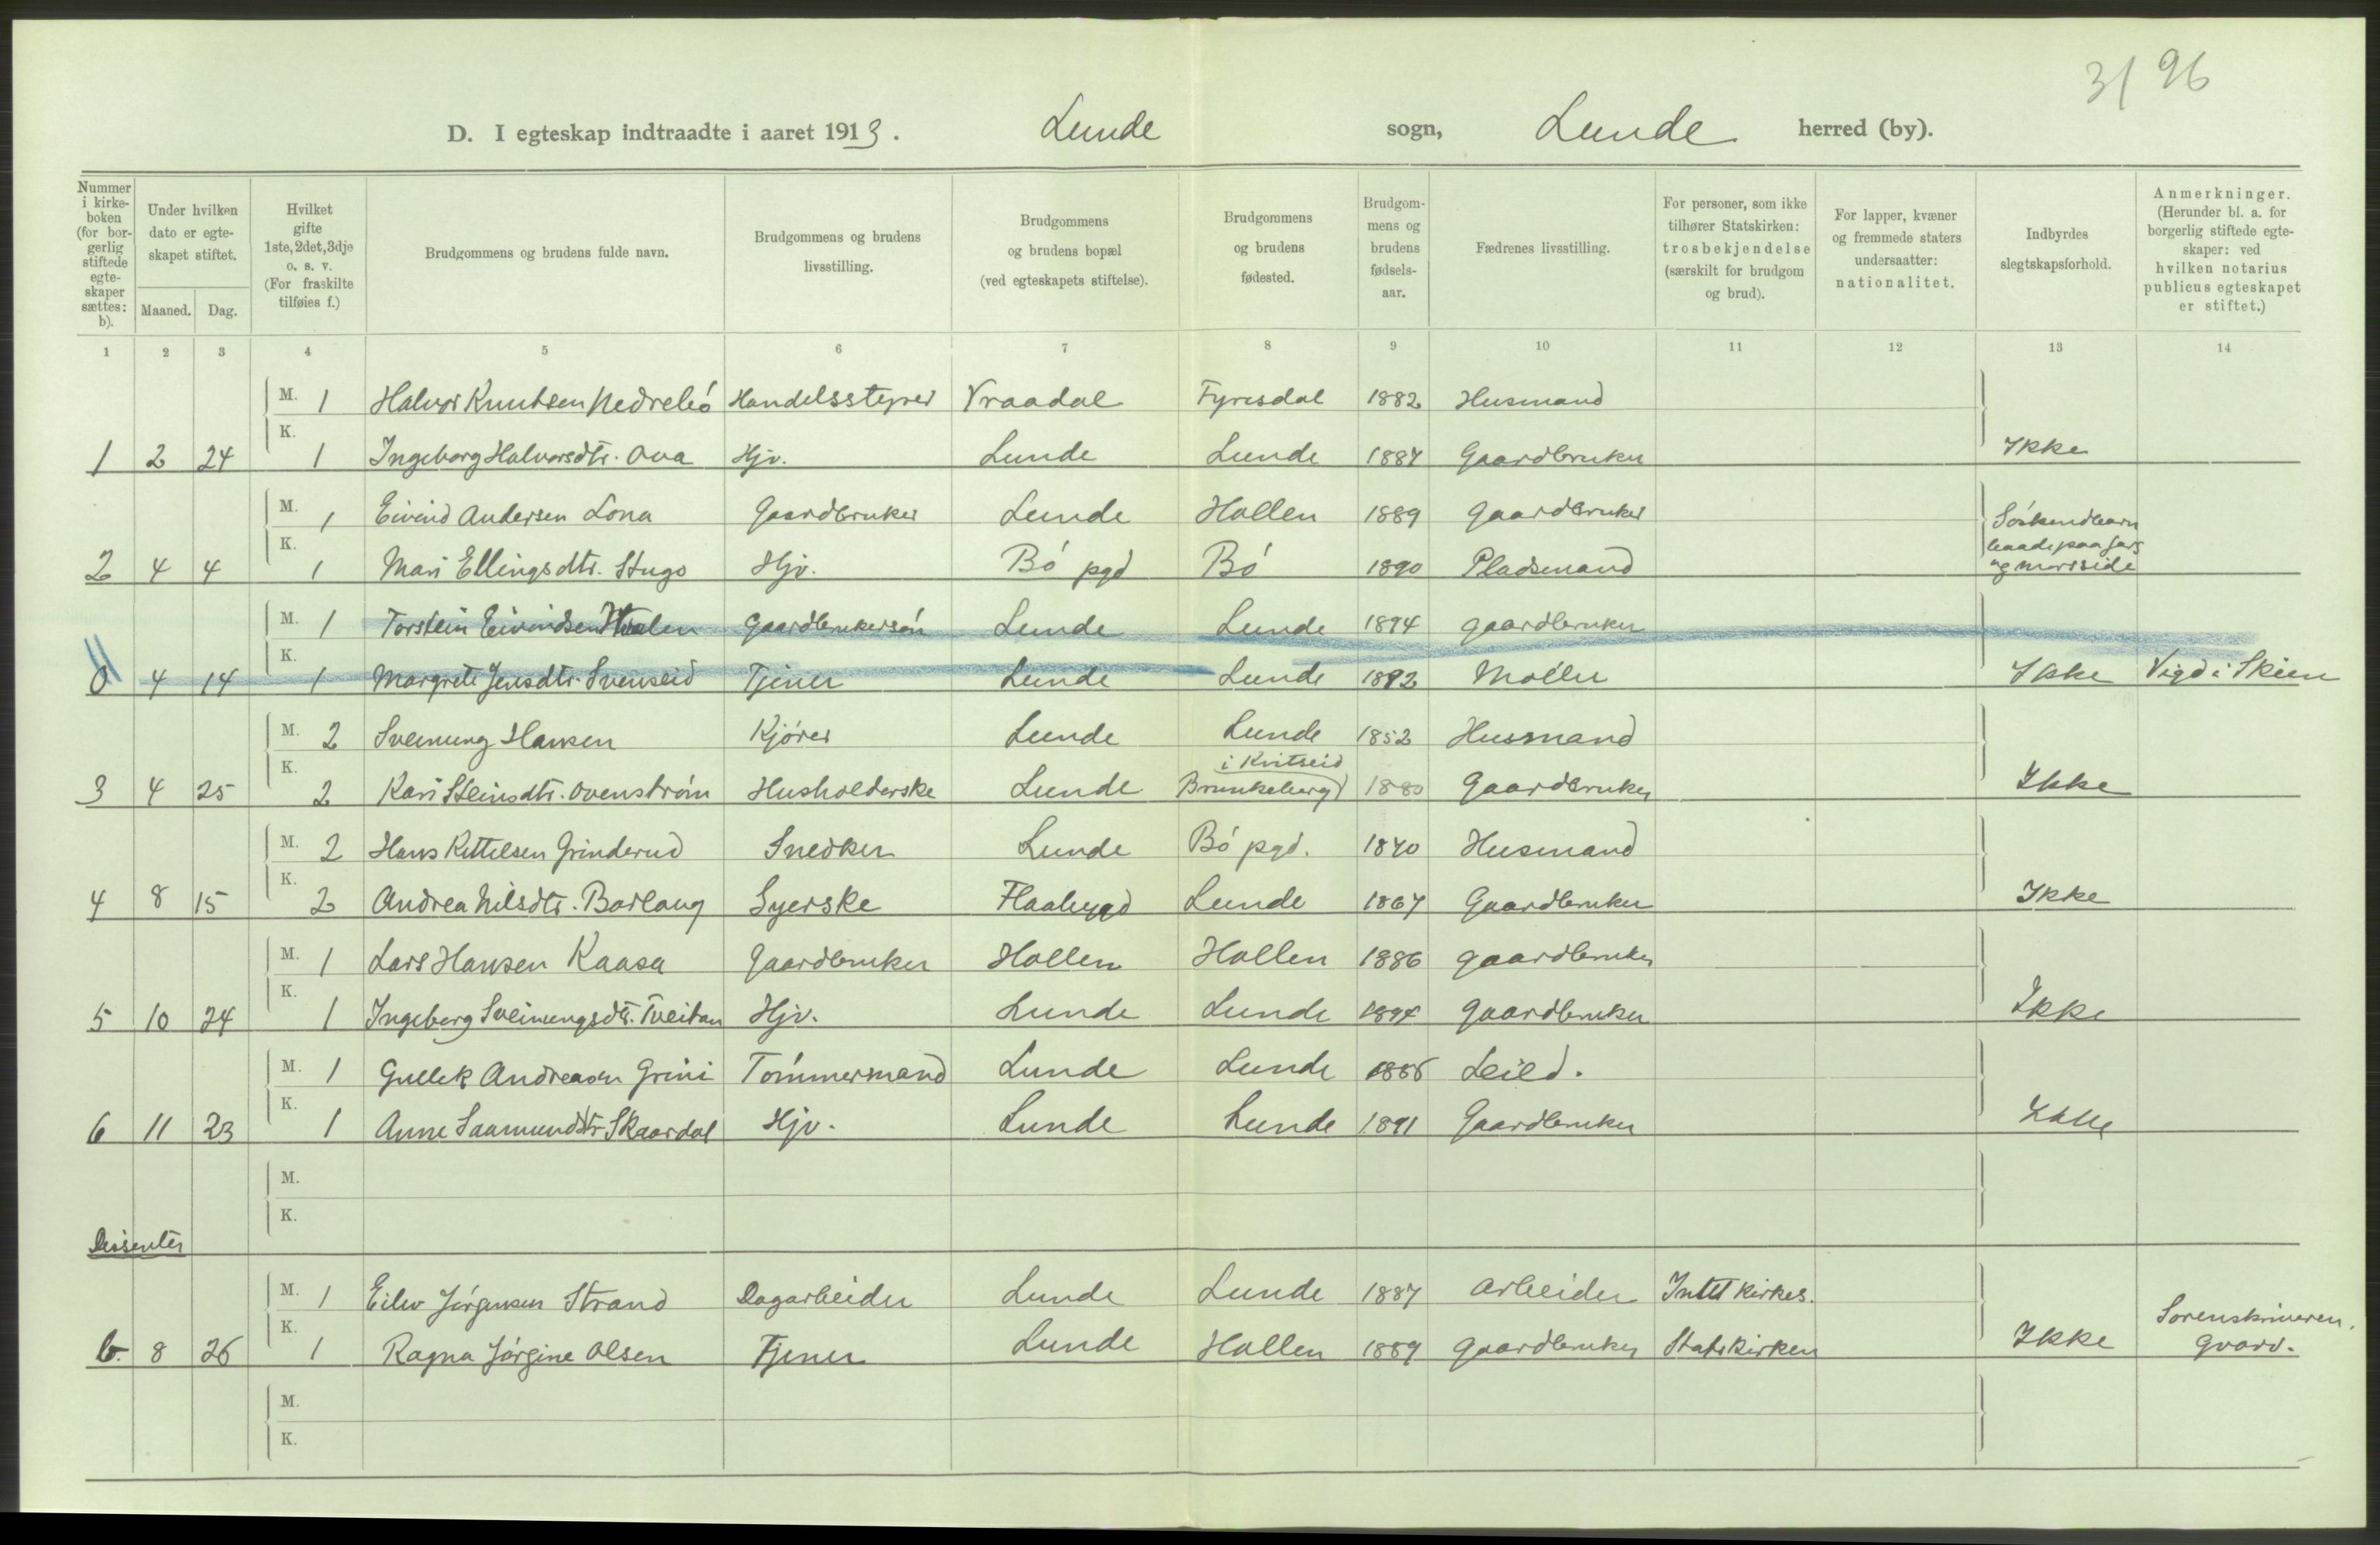 3/ 96
D. I egteskap indtraadte i aaret 1913. Lunde sogn, Lunde herred (by).
Nummer i kirkeboken (for borgerlig stiftede egteskaper sættes: b).
Under hvilken dato er egteskapet stiftet.
Maaned. Dag.
Hvilket gifte 1ste, 2det, 3dje o. s. v. (For fraskilte tilføies f.)
Brudgommens og brudens fulde navn.
Brudgommens og brudens livsstilling.
Brudgommens og brudens bopæl (ved egteskapets stiftelse).
Brudgommens og brudens fødested.
Brudgommens og brudens fødselsaar.
Fædrenes livsstilling.
For personer, som ikke tilhører Statskirken: trosbekjendelse (særskilt for brudgom og brud).
For lapper, kvæner og fremmede staters undersaatter: nationalitet.
Indbyrdes slegtskapsforhold.
Anmerkninger. (Herunder bl. a. for borgerlig stiftede egteskaper: ved hvilken notarius publicus egteskapet er stiftet.)
1 2 3 4 5 6 7 8 9 10 11 12 13 14
M. 1 Halvor Knutsen Nedrebó Handelsstyrer Vraadal Fyresdal 1882 Husmand
1 2 24 K. 1 Ingeborg Halvorsdtr. Ova Hjv. Lunde Lunde 1887 Gaardbruker Ikke
M. 1 Eivind Andersen Lona Gaardbruker Lunde Hollen 1889 Gaardbruker Sóskendbarn
2 4 4 K. 1 Mari Ellingsdtr. Stugo Hjv. Bó pgd Bó 1890 Pladsmand baade paa fars og morsside
M. 1 Torstein Eivindsen Gaardbrukersón Lunde Lunde 1894 gaardbruker
0 4 14 K. 1 Margrete Jensdtr. Svenseid Tjener Lunde Lunde 1892 Móller Ikke Vigd i Skien
M. 2 Sveinung Hansen Kjórer Lunde Lunde 1852 Husmand
i Kvitseid
3 4 25 K. 2 Kari Steinsdtr. Ovenstróm Husholderske Lunde Brunkeberg 1880 Gaardbruker Ikke
M. 2 Hans Kittelsen Grinderud Snedker Lunde Bó pgd. 1840 Husmand
4 8 15 K. 2 Andrea Nilsdtr. Barlaug Syerske Flaabygd Lunde 1867 Gaardbruker Ikke
M. 1 Lars Hansen Kaasa Gaardbruker Hollen Hollen 1886 gaardbruker
5 10 24 K. 1 Ingeborg Sveinungsdtr. Tveitan Hjv. Lunde Lunde 1894 gaardbruker Ikke
M. 1 Gullek Andreasen Grini Tómmermand Lunde Lunde 1886 Leil.
6 11 23 K. 1 Anne Saamundsdtr Skaardal Hjv. Lunde Lunde 1891 Gaardbruker Ikke
M.
K.
Dissenter
M. 1 Eilev Jórgensen Strand Dagarbeider Lunde Lunde 1887 Arbeider Intet kirkes.
b. 8 26 K. 1 Ragna Jórgine Olsen Tjener Lunde Hollen 1889 gaardbruker Statskirken Ikke Sorenskriveren, Gvarv.
M.
K.